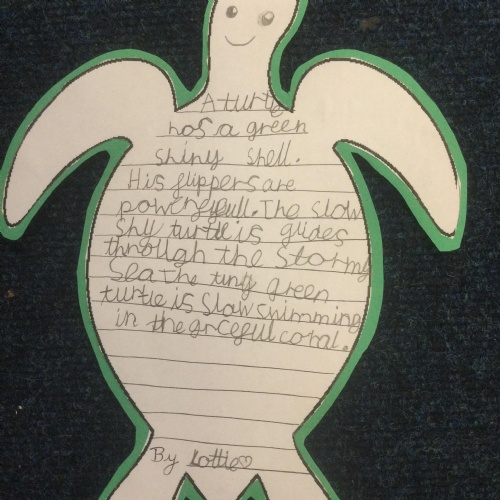 A turtle
has a green
shiny shell.
His flippers are
powerfull. The slow
shy turtle is glides
through the stormy
Sea the tiny green
turtle is slow swimming
in the grceful coral.
By Lottie♡